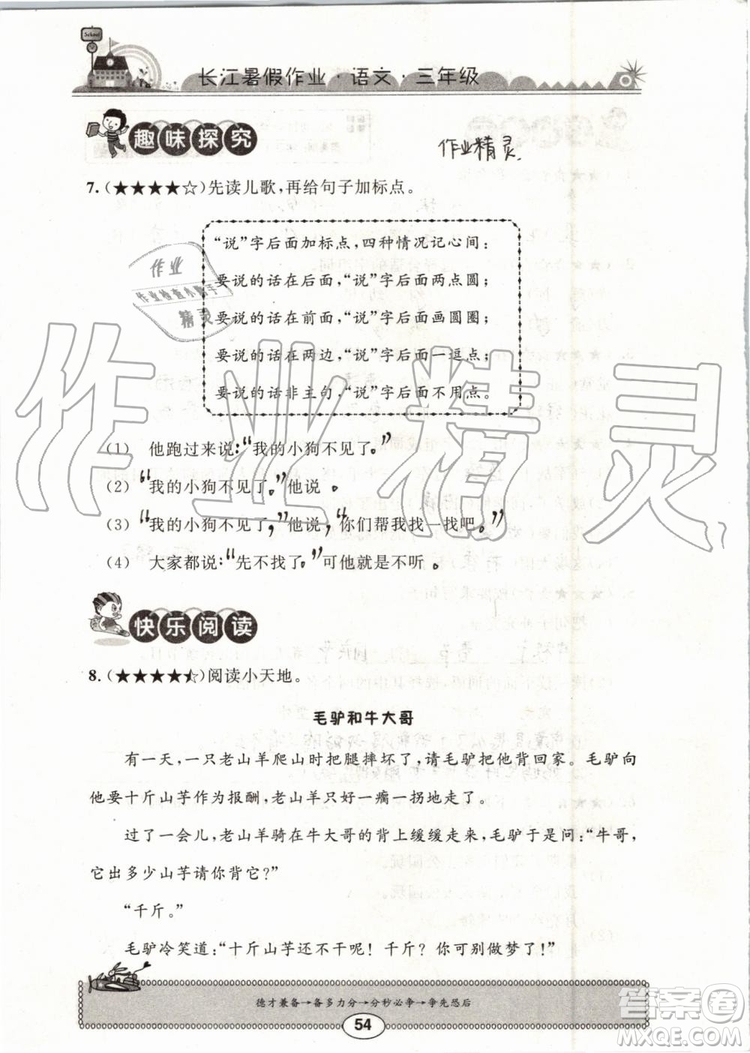 School
长江暑假作业·语文·三年级
趣味探究
作业精灵
7.(★★★★☆)先读儿歌,再给句子加标点。
“说”字后面加标点,四种情况记心间:
要说的话在后面,“说”字后面两点圆;
要说的话在前面,“说”字后面画圆圈;
要说的话在两边,“说”字后面一逗点;
要说的话非主句,“说”字后面不用点。
作业
作业检查小助手
精灵
作业精灵
(1) 他跑过来说:“我的小狗不见了。”
(2)“我的小狗不见了。”他说。
(3)“我的小狗不见了。”他说,“你们帮我找一找吧。”
(4) 大家都说:“先不找了”可他就是不听。
快乐阅读
8.(★★★★☆)阅读小天地。
毛驴和牛大哥
有一天,一只老山羊爬山时把腿摔坏了,请毛驴把他背回家。毛驴向
他要十斤山芋作为报酬,老山羊只好一瘸一拐地走了。
过了一会儿,老山羊骑在牛大哥的背上缓缓走来,毛驴于是问:“牛哥,
它出多少山芋请你背它?”
“千斤。”
毛驴冷笑道:“十斤山芋还不干呢!千斤?你可别做梦了!”
德才兼备→备多力分→分秒必争→争先恐后
54
答案圈
MXQE.COM